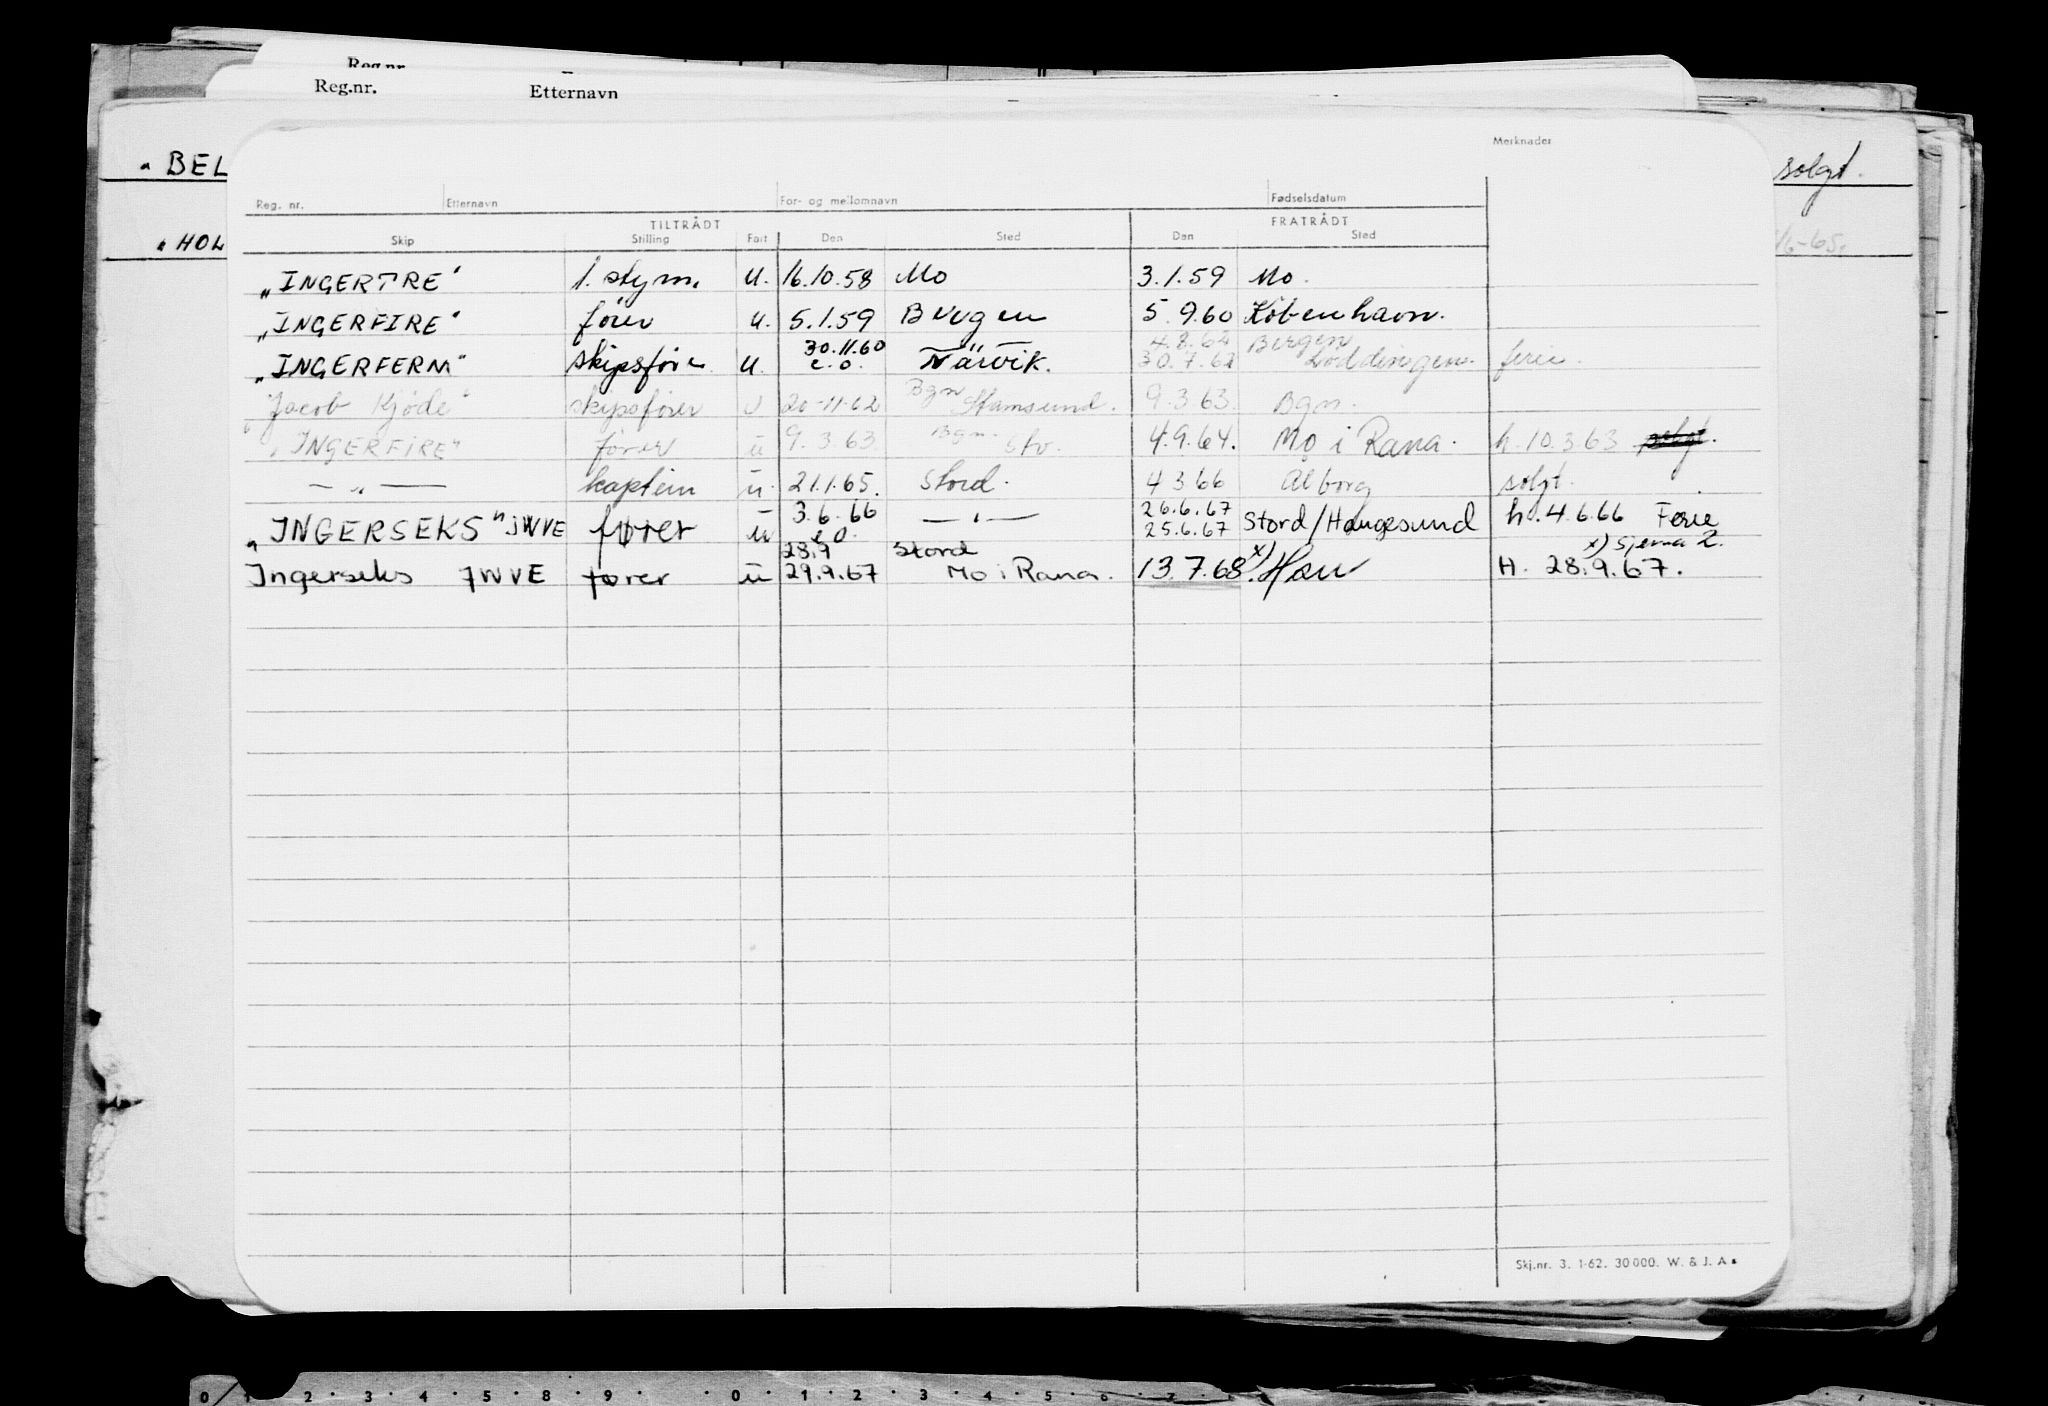 Reg.nr.
Reg.nr. Etternavn
Merknader
„ BEL solgt.
Reg. nr. Etternavn For- og mellomnavn Fødselsdatum
TILTRÅDT FRATRÅDT
„ HOL Skip Stilling Fart Den Sted Den Sted
„INGERTRE" 1. styrm. u. 16.10.58 Mo 3.1.59 Mo.
„INGERFIRE" fører u. 5.1.59 Bergen 5.9.60 København.
30.11.60 4.8.62 Bergen
„INGERFERM" skipsfører u. e.o. Narvik. 30.7.62 Løddingen. ferie.
Bgn
„Jacob Kjøde" skipsfører u 20-11-62 Stamsund. 9.3.63. Bgn.
Bgn.
„INGERFIRE" fører u 9.3.63. Stv. 4.9.64. Mo i Rana. h. 10.3.63 solgt.
— „ — kaptein u. 21.1.65. Stord. 4 3 66 Ålborg solgt.
3.6.66 26.6.67
„INGERSEKS" JWVE fører u e.o. — „ — 25.6.67 Stord/Haugesund h. 4.6.66 Ferie
28.9 Stord x)
Ingerseks JWVE fører u 29.9.67 Mo i Rana. 13.7.68. H. 28.9.67.
Skj.nr. 3. 1-62. 30 000. W. & J. A s
0 1 2 3 4 5 8 9 0 1 2 3 4 5 6 7